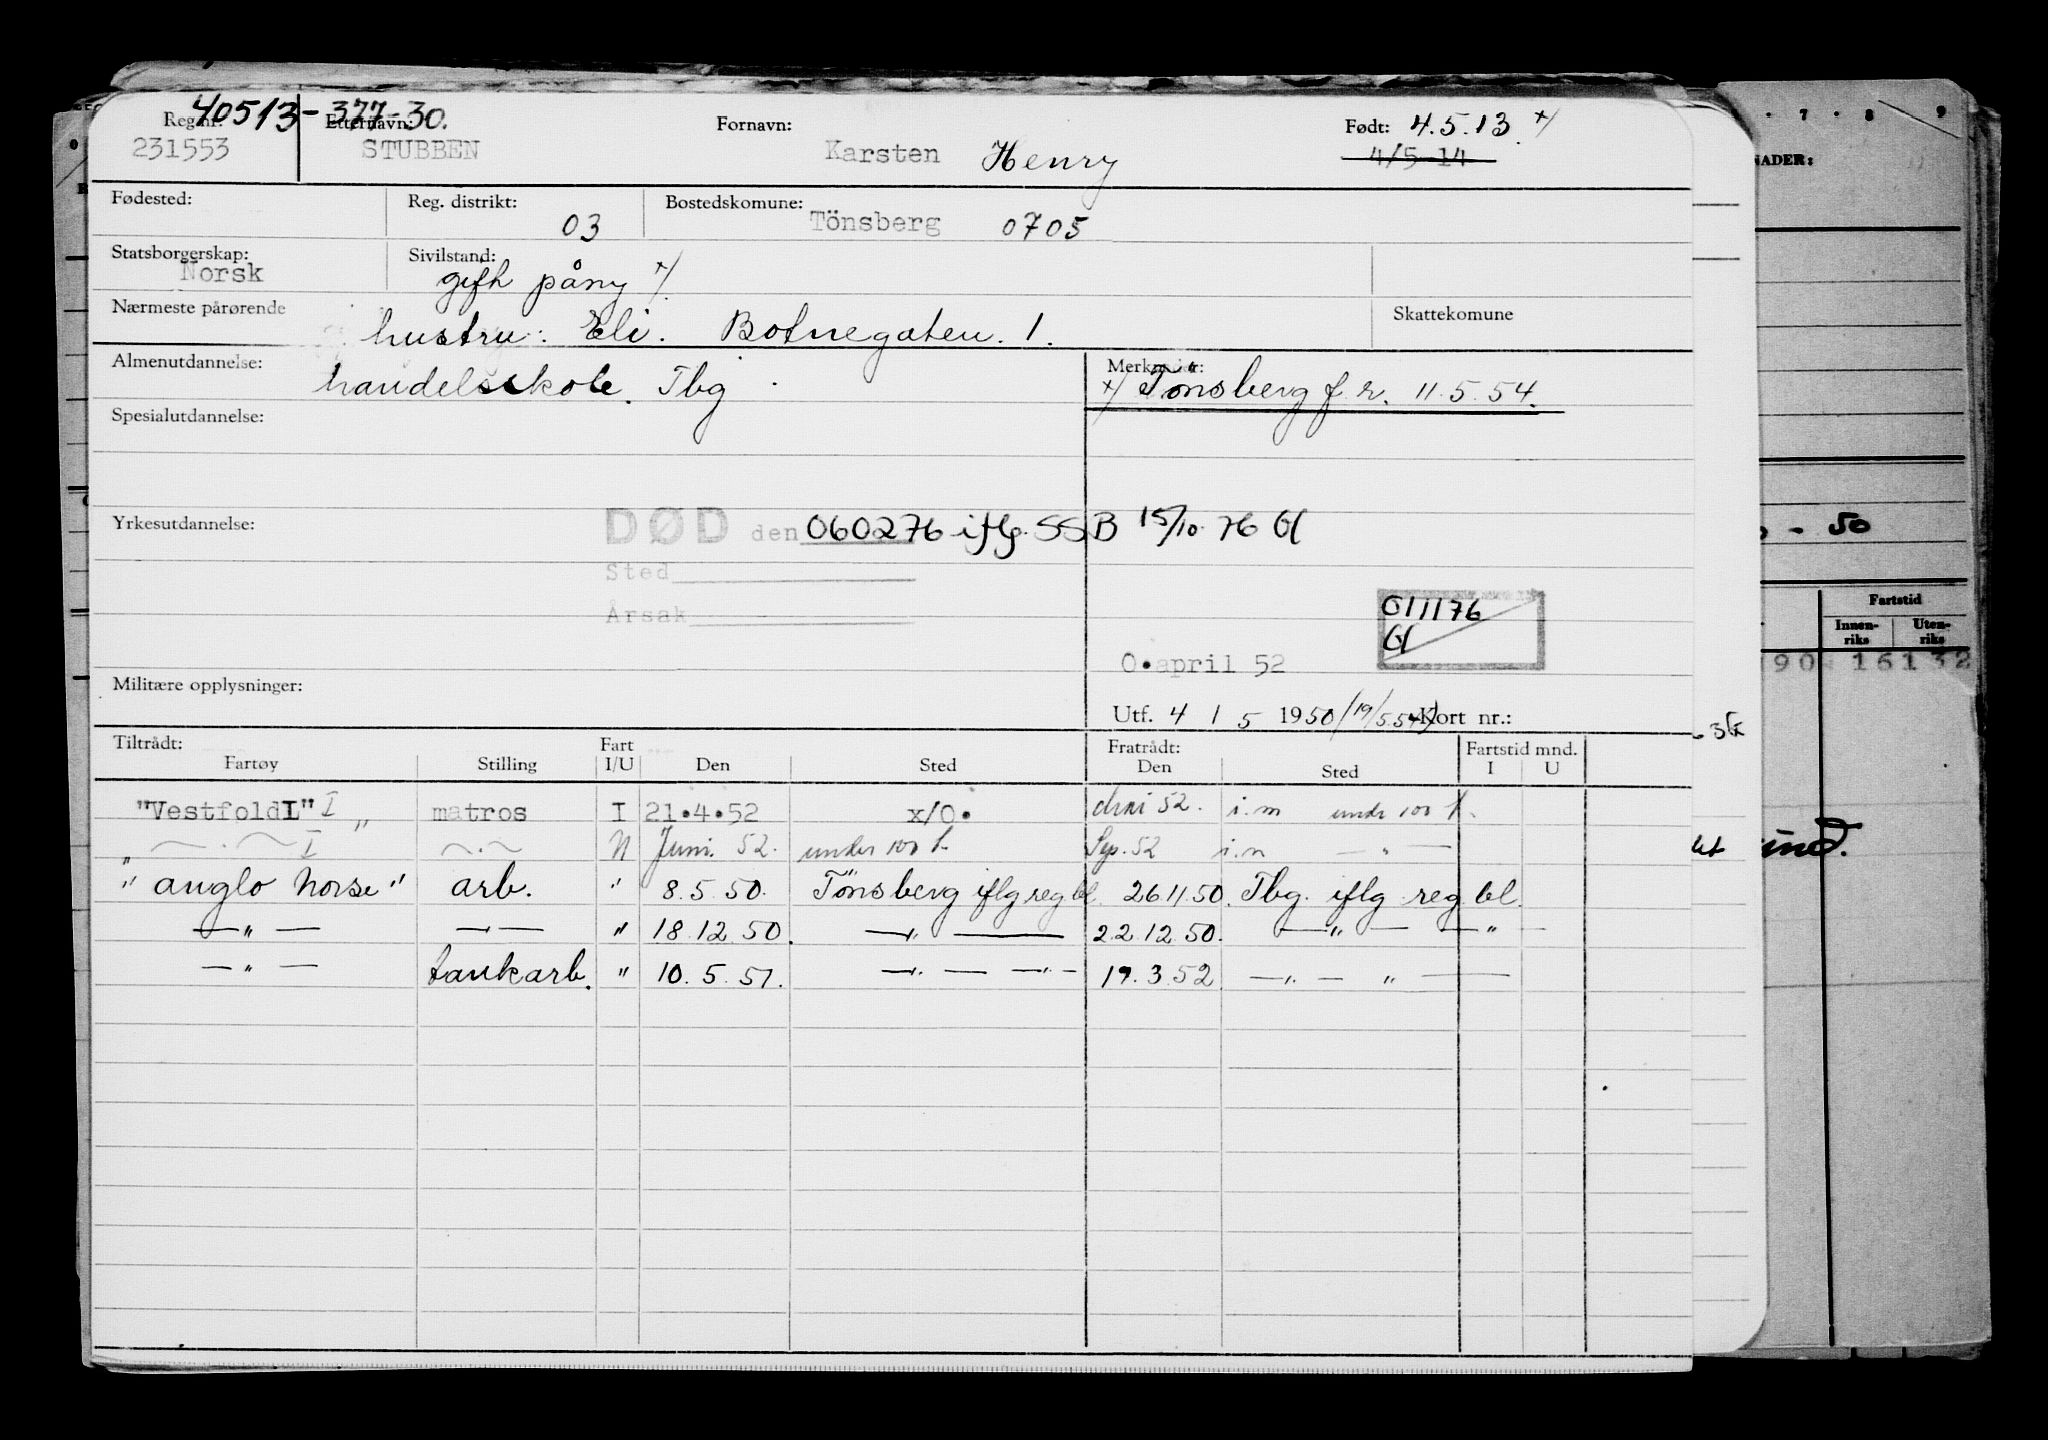 40513-377-30.
Reg.nr. Etternavn: Fornavn: Født: 4.5.13 x/
231553 STUBBEN Karsten Henry 4/5-14
Fødested: Reg. distrikt: 03 Bostedskomune: Tönsberg 0705
Statsborgerskap: Norsk Sivilstand: gift påny x/
Nærmeste pårørende hustru: Eli. Botnegaten. 1. Skattekomune
Almenutdannelse: handelsskole. Tbg. Merknader: x/ Tönsberg f.r. 11.5.54.
Spesialutdannelse:
Yrkesutdannelse: DØD den 060276 iflg. SSB 15/10-76 Gl
Sted
Årsak
011176
Gl
O.april 52
Militære opplysninger:
Utf. 4 / 5 1950 (19/5.54) Kort nr.:
Tiltrådt: Fart Fratrådt: Fartstid mnd.
Fartøy Stilling I/U Den Sted Den Sted I U
"VestfoldI" I " matros I 21.4.52 x/O. mai 52. i.m under 100 t.
" — . — I — . — N Juni. 52. under 100 t. Sep. 52 i.m — " —
" anglo norse" arb. " 8.5.50. Tönsberg iflg reg bl 26.11.50. Tbg. iflg reg. bl.
— " — — . — " 18.12.50. — " — 22.12.50. — " — — " —
— " — tankarb. " 10.5.51. — " — — " — 19.3.52 — " — " —
7 . 8 9
NADER:
- 50
Fartstid
Innen-
riks
Uten-
riks
90 16132
ind.